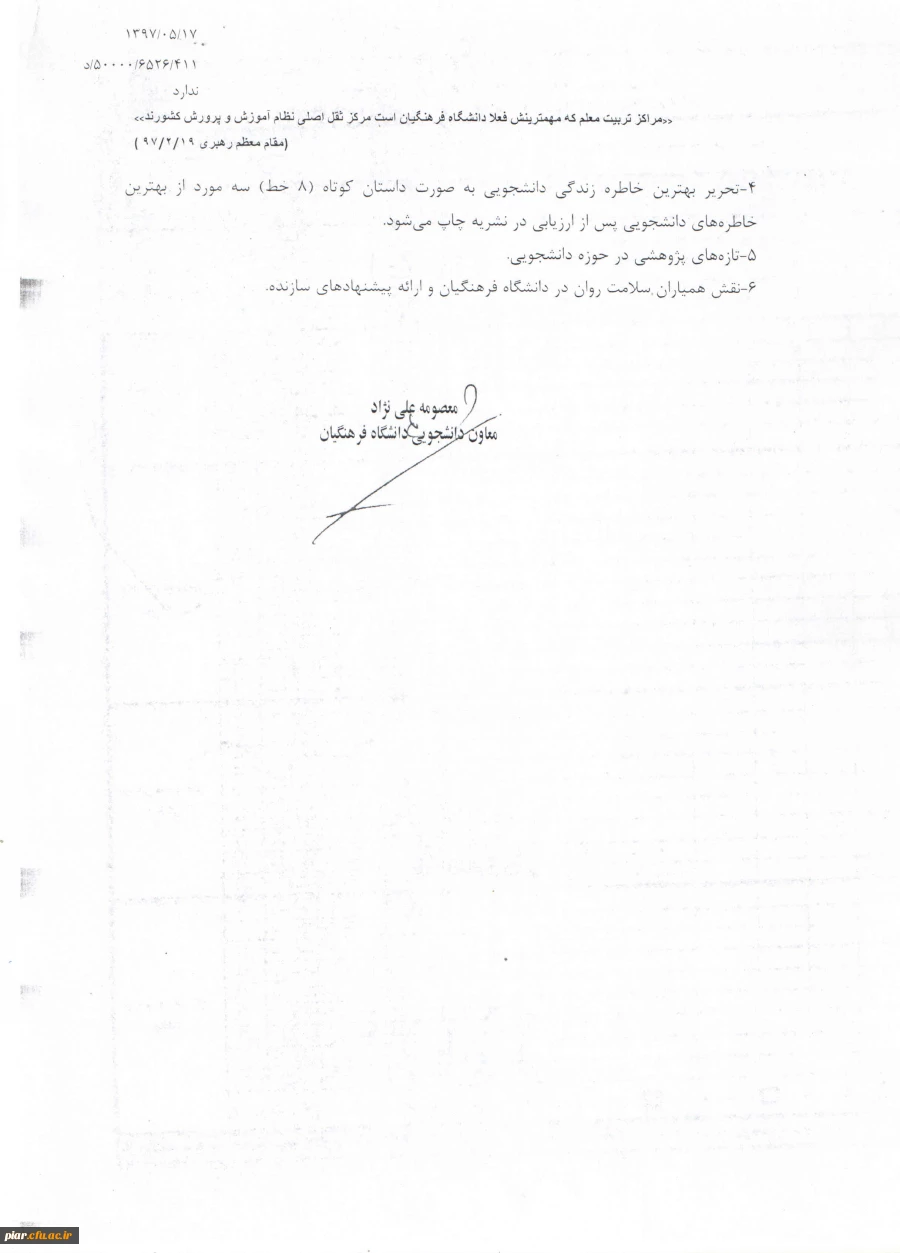 ۱۳۹۷/۰۵/۱۷
۵۰۰۰۰/۶۵۲۶/۴۱۱/د
ندارد
<<مراکز تربیت معلم که مهمترینش فعلا دانشگاه فرهنگیان است مرکز ثقل اصلی نظام آموزش و پرورش کشورند>>
(مقام معظم رهبری ۹۷/۲/۱۹ )
۴-تحریر بهترین خاطره زندگی دانشجویی به صورت داستان کوتاه (۸ خط) سه مورد از بهترین
خاطره‌های دانشجویی پس از ارزیابی در نشریه چاپ می‌شود.
۵-تازه‌های پژوهشی در حوزه دانشجویی.
۶-نقش همیاران سلامت روان در دانشگاه فرهنگیان و ارائه پیشنهادهای سازنده.
معصومه علی نژاد
معاون دانشجویی دانشگاه فرهنگیان
piar.cfu.ac.ir